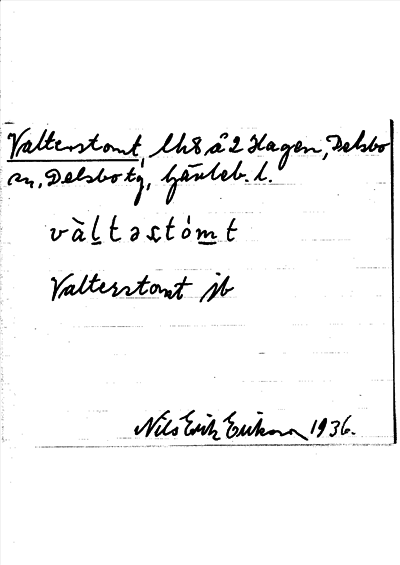 Valterstomt, lh8 å 2 Hagen, Delsbo
sn, Delsbo tg, Gävleb. l.
vàl̲təstóm̲t
Valterstomt jb
Nils Erik Erikson 1936.